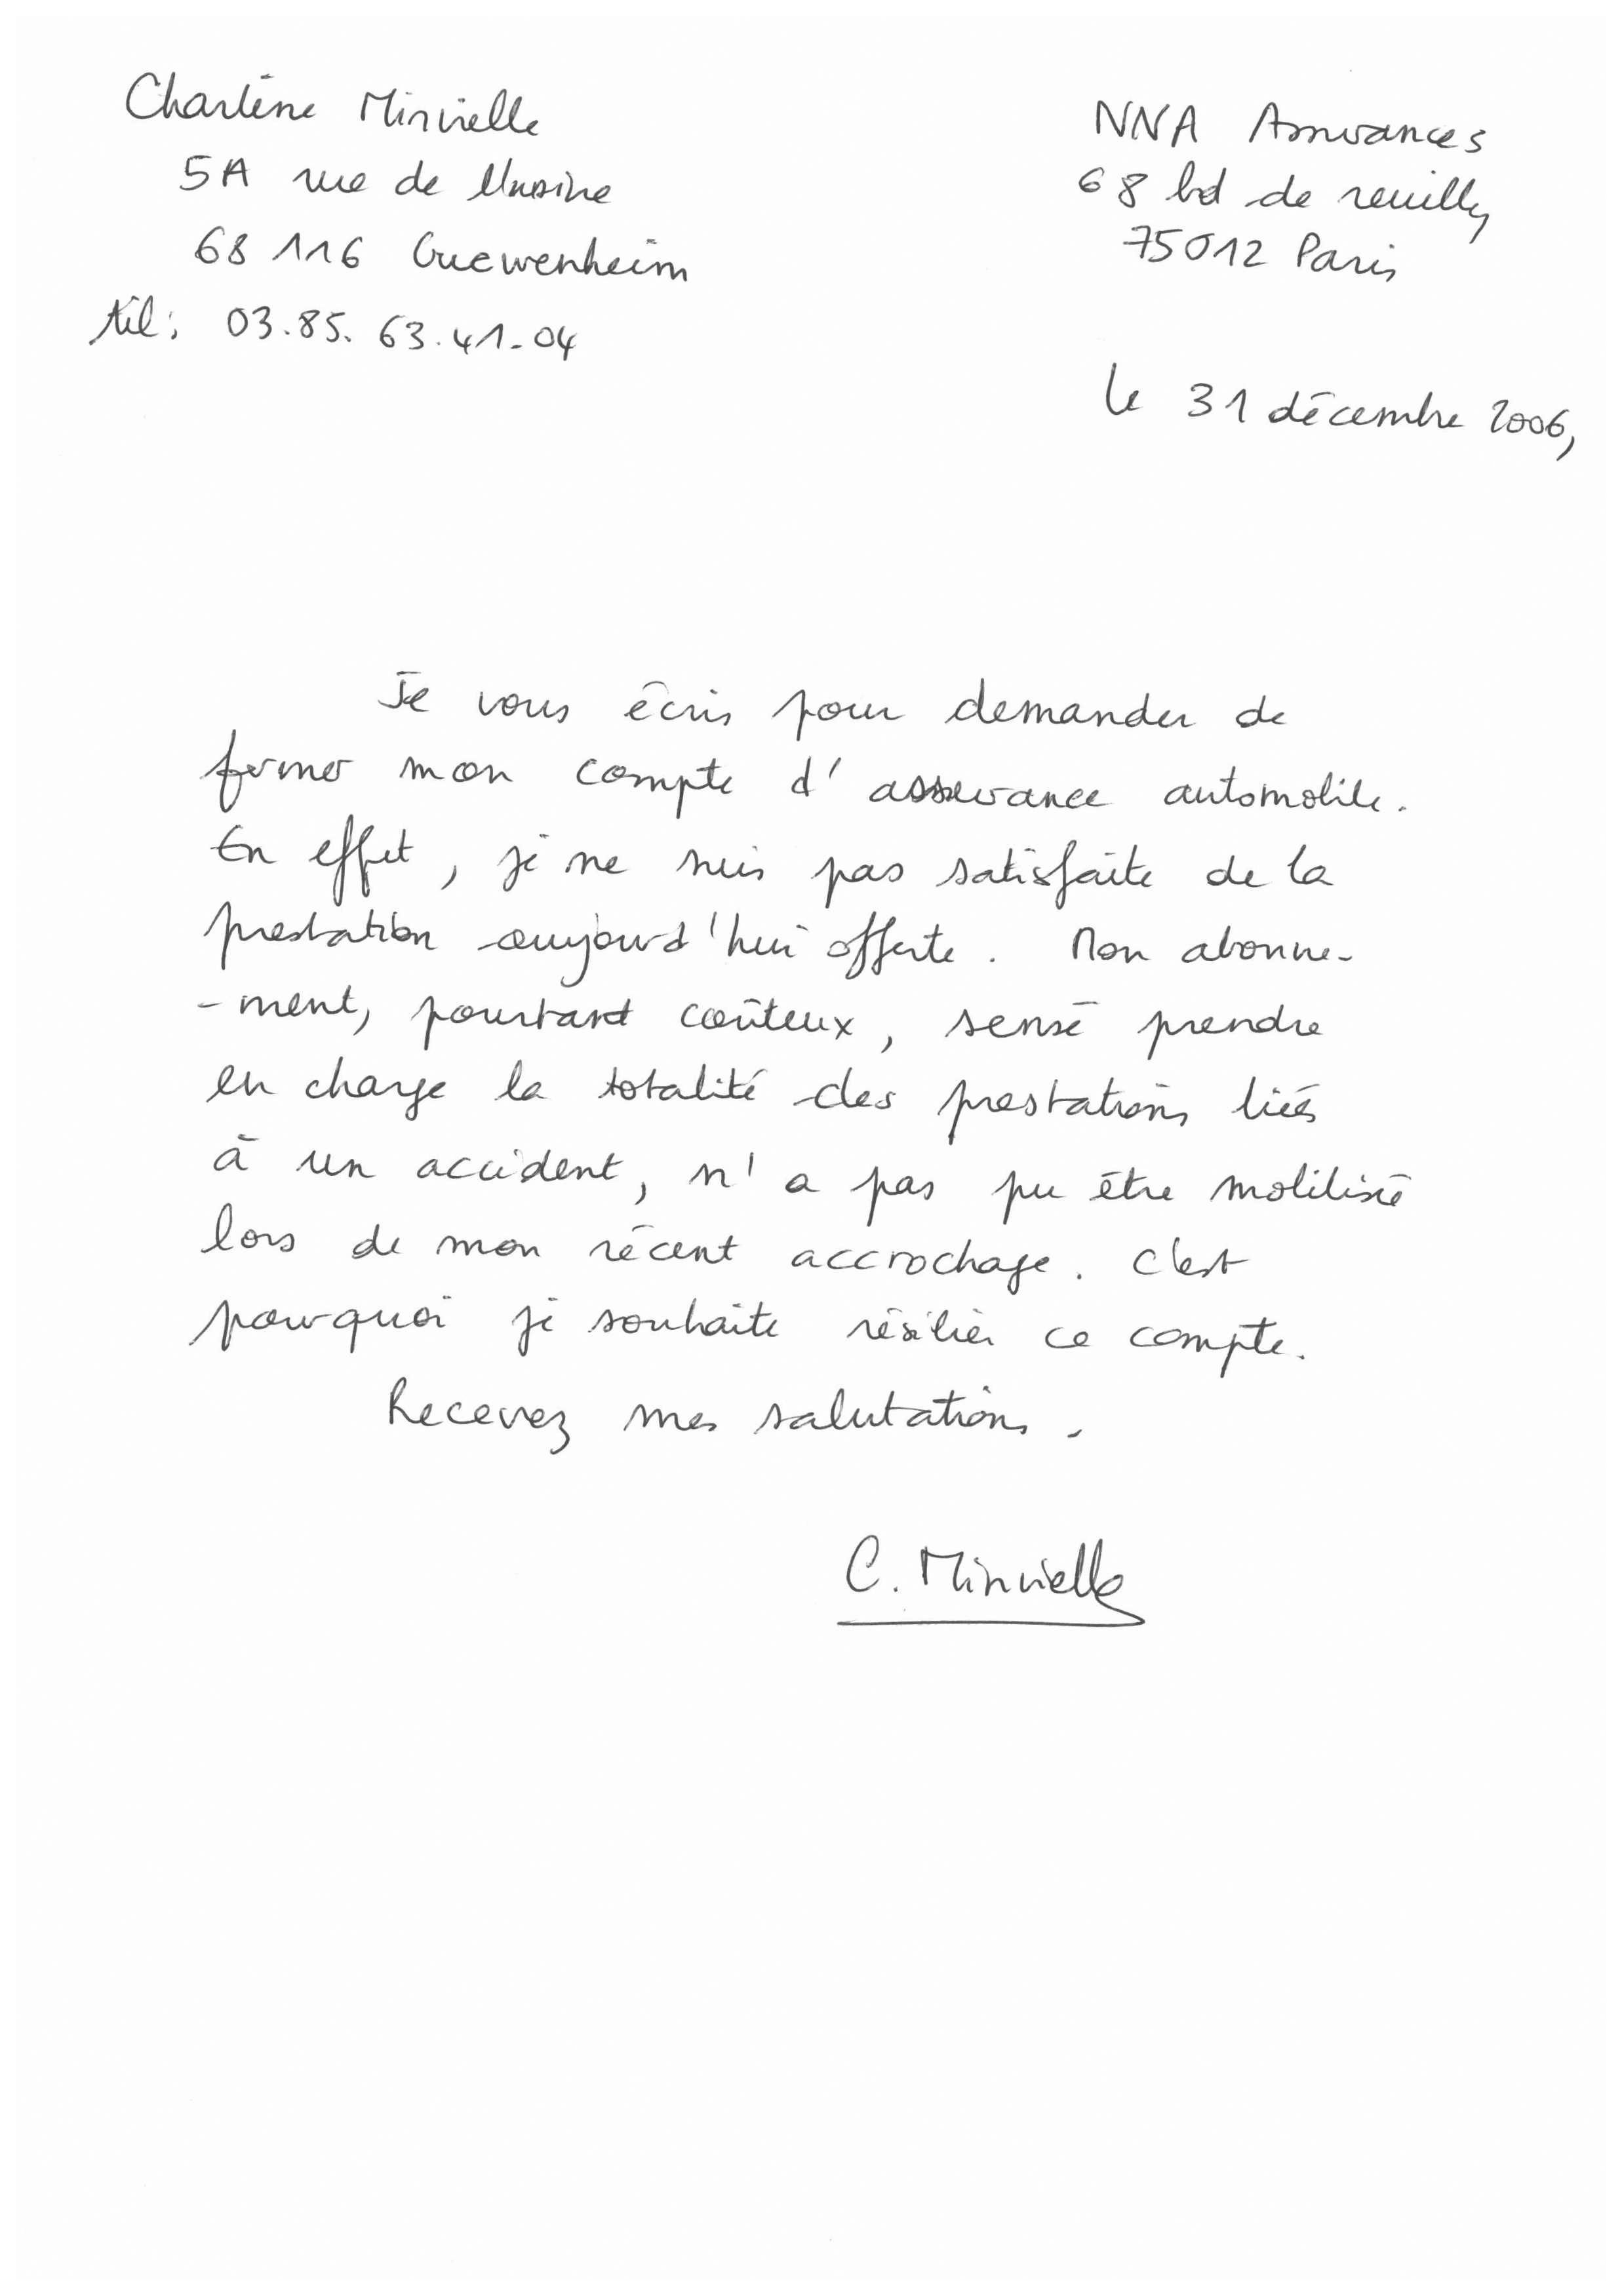 Charlène Minvielle
5A rue de l'usine
68 116 Guewenheim
tél : 03.85.63.41.04
NNA Assurances
68 bd de reuilly
75012 Paris
le 31 décembre 2006,
Je vous écris pour demander de
fermer mon compte d'assurance automobile.
En effet, je ne suis pas satisfaite de la
prestation aujourd'hui offerte. Mon abonne-
-ment, pourtant coûteux, sensé prendre
en charge la totalité des prestations liés
à un accident, n'a pas pu être mobilisé
lors de mon récent accrochage. C'est
pourquoi je souhaite résilier ce compte.
Recevez mes salutations.
C. Minvielle